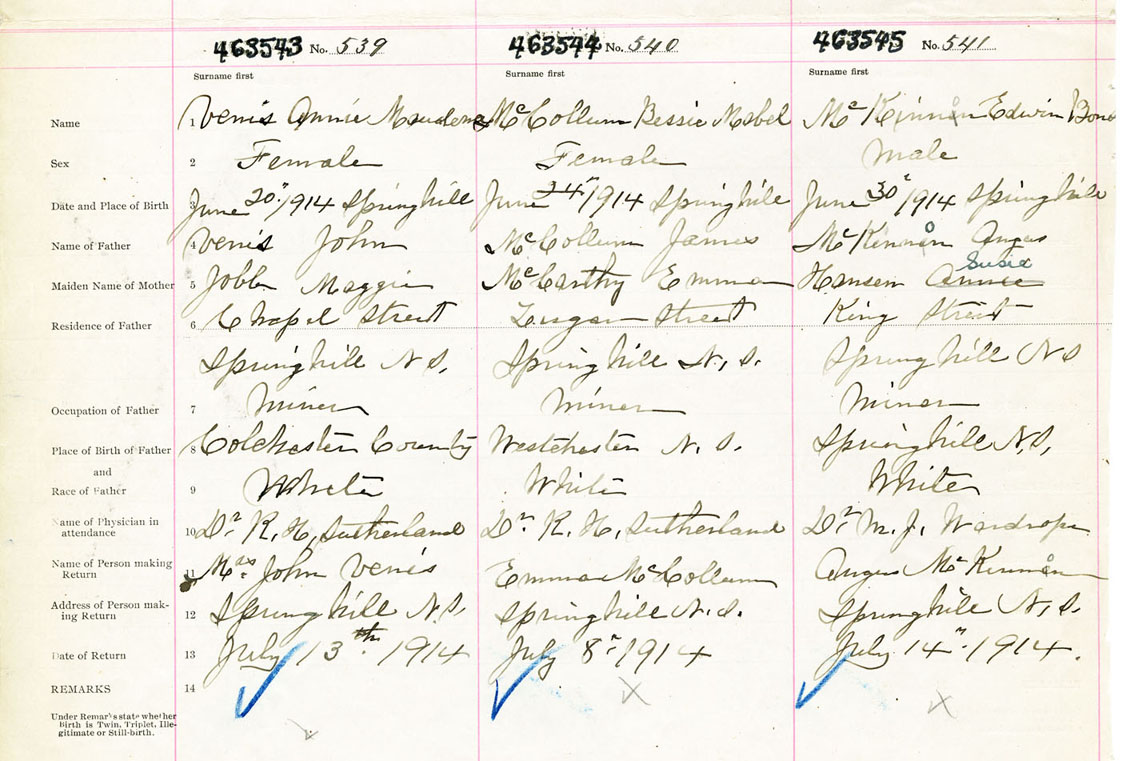 463543 No. 539 463544 No. 540 463545 No. 541
Surname first Surname first Surname first
Name 1 Venis Annie McCollum Bessie Mabel McKinnon Edwin
Sex 2 Female Female Male
Date and Place of Birth 3 June 20" 1914 Springhill June 24" 1914 Springhill June 30" 1914 Springhill
Name of Father 4 Venis John McCollum James McKinnon Angus
Susie
Maiden Name of Mother 5 Jobb Maggie McCarthy Emma Hansen Annie
Residence of Father 6 Chapel Street Street King Street
Springhill N S. Springhill N. S. Springhill N S
Occupation of Father 7 Miner Miner Miner
Place of Birth of Father 8 Colchester County Westchester N. S. Springhill N.S,
and
Race of Father 9 White White White
Name of Physician in
attendance 10 Dr. K. H. Sutherland Dr. K. H. Sutherland Dr. M. J. Wardrope
Name of Person making
Return 11 Mrs. John Venis Emma McCollum Angus McKinnon
Address of Person mak-
ing Return 12 Springhill N.S. Springhill N.S. Springhill N.S.
Date of Return 13 July 13th. 1914 July 8" 1914 July 14" 1914.
REMARKS 14
Under Remarks state whether
Birth is Twin, Triplet, Ille-
gitimate or Still-birth.